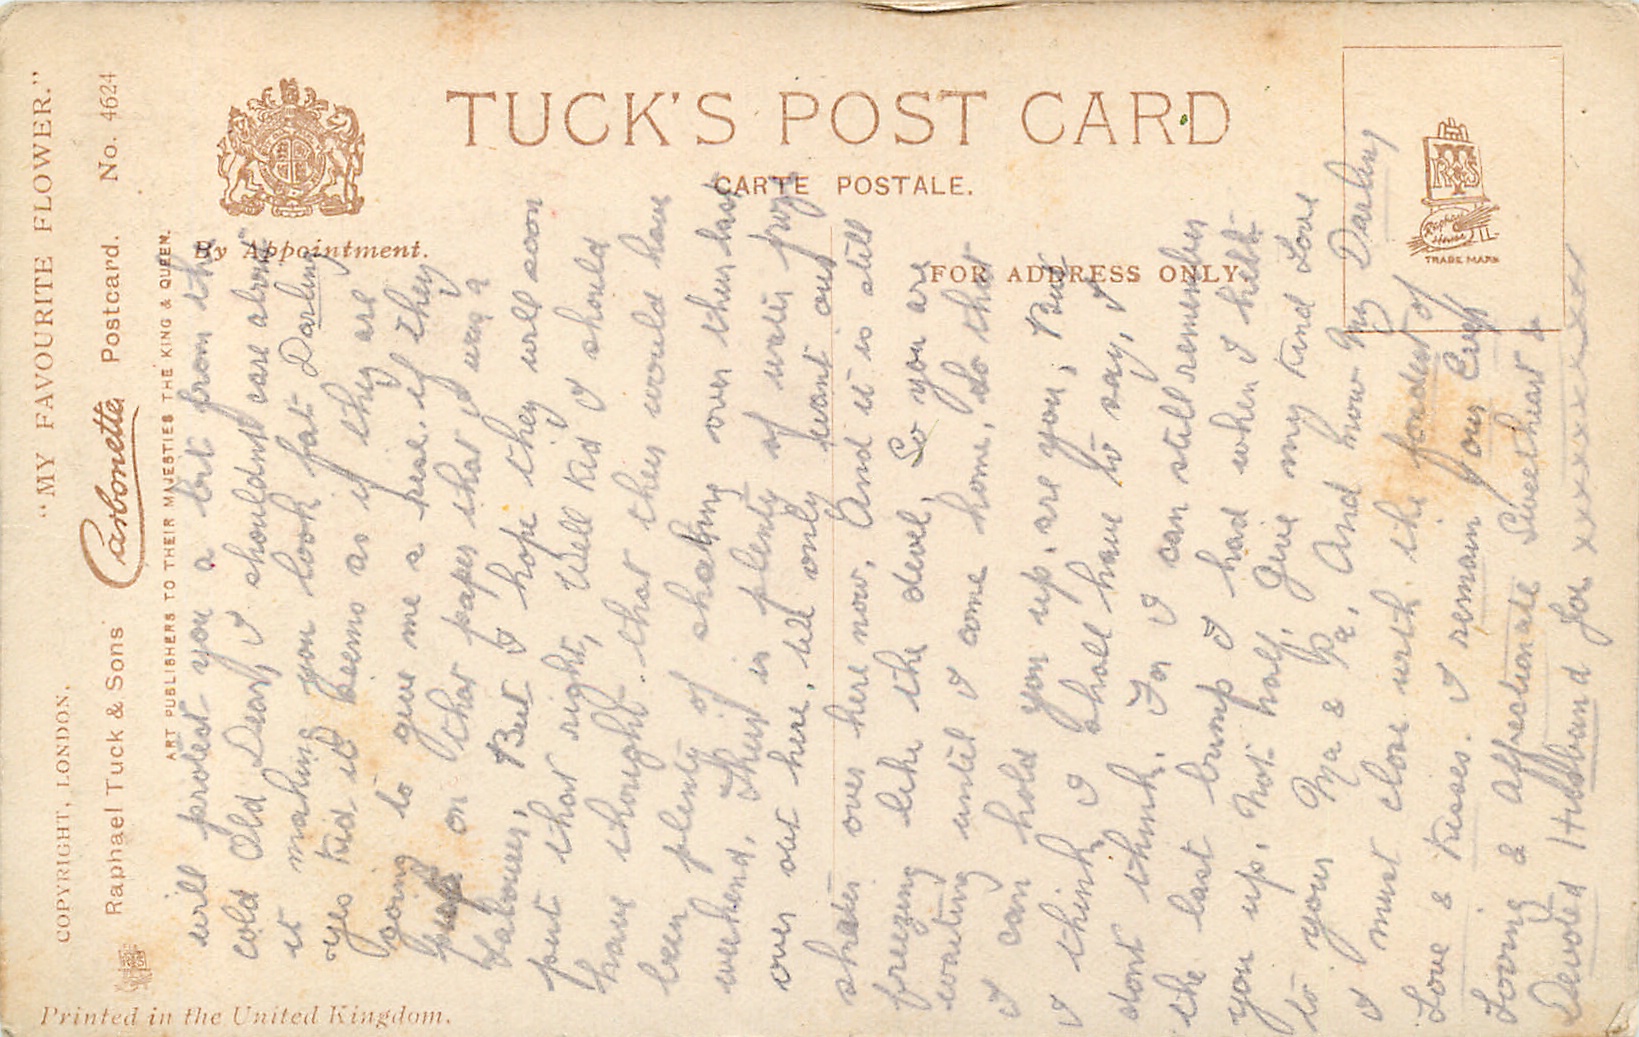 "MY FAVOURITE FLOWER."
COPYRIGHT, LONDON.
Raphael Tuck & Sons' "Carbonette" Postcard. No. 4624
ART PUBLISHERS TO THEIR MAJESTIES THE KING & QUEEN.
By Appointment.
TUCK'S POST CARD
CARTE POSTALE.
FOR ADDRESS ONLY.
Raphael House
TRADE MARK
Printed in the United Kingdom.
will protect you a bit from the
cold Old Dear, I shouldnt care about
it making you look fat Darling
Yes Kid it seems as if they are
going to give me a rise. if they
on that paper that I was a
Labourer, But I hope they will soon
put that right, Well Kid I should
have thought. that they would have
been plenty of skating over there last
weekend. There is plenty of water froze
over out here, till only want our
skates over here now, And it is still
freezing like the devil, So you are
waiting until I come home, so that
I can hold you up, are you, But
I think I shall have to say, I
dont think. For I can still remember
the last bump I had when I held
you up, Not half, Give my Kind Love
to your Ma & Pa, And now My Darling
I must close with the fondest of
Love & Kisses. I remain Your Ever
Loving & Affectionate Sweetheart &
Devoted Husband for xxxxxxxx